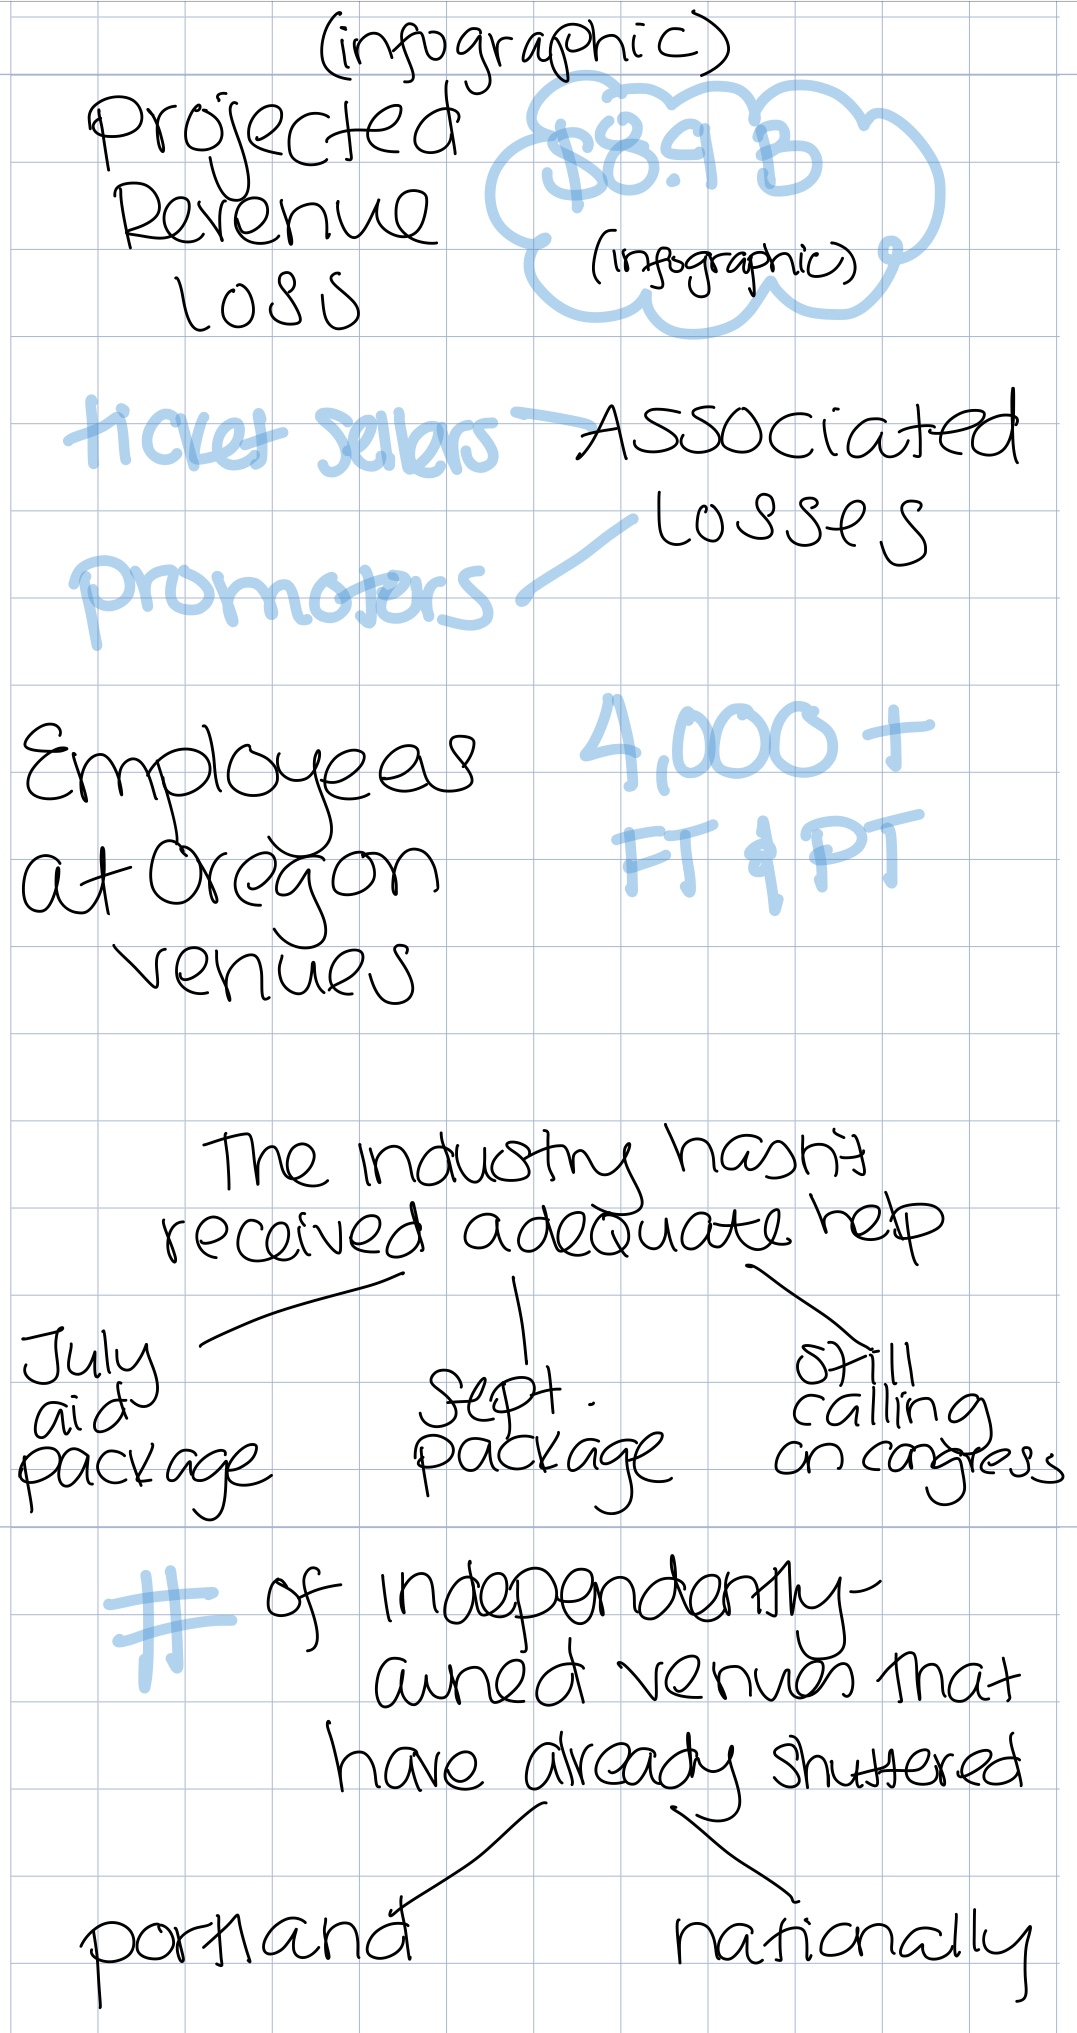 (infographic)
Projected
Revenue
Loss
$8.9 B
(infographic)
ticket sellers
promoters
Associated
Losses
Employees
at Oregon
venues
4,000 +
FT & PT
The industry hasn't
received adequate help
July
aid
package
Sept.
package
still
calling
on congress
# of independently-
owned venues that
have already shuttered
portland
nationally